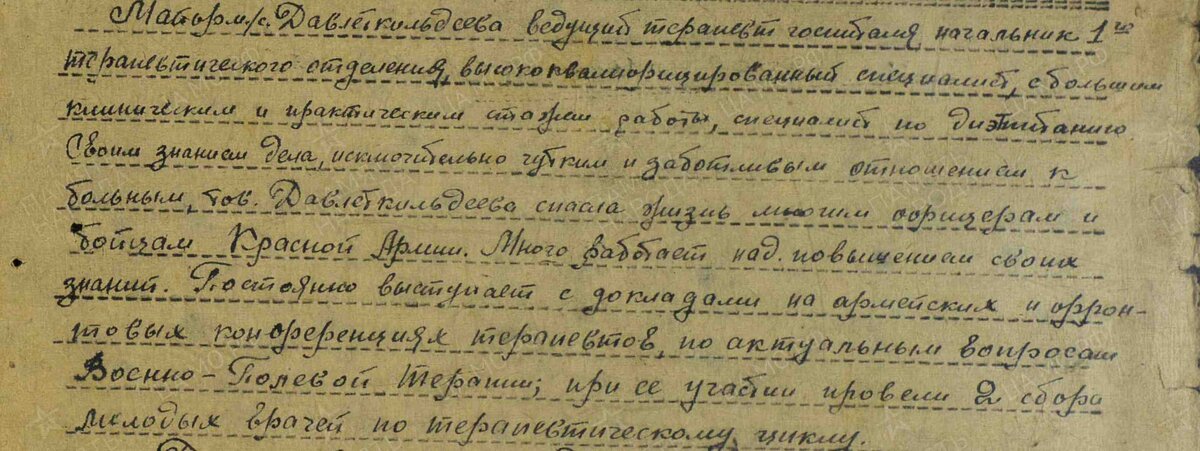 Майор м/с. Давлеткильдеева ведущий терапевт госпиталя, начальник 1го
терапевтического отделения, высококвалифицированный специалист, с большим
клиническим и практическим стажем работы, специалист по диэтпитанию.
Своим знанием дела, исключительно чутким и заботливым отношением к
больным, тов. Давлеткильдеева спасла жизнь многим офицерам и
бойцам Красной Армии. Много работает над повышением своих
знаний. Постоянно выступает с докладами на армейских и фрон-
товых конференциях терапевтов, по актуальным вопросам
Военно-Полевой Терапии; при ее участии провели 2 сбора
молодых врачей по терапевтическому циклу.